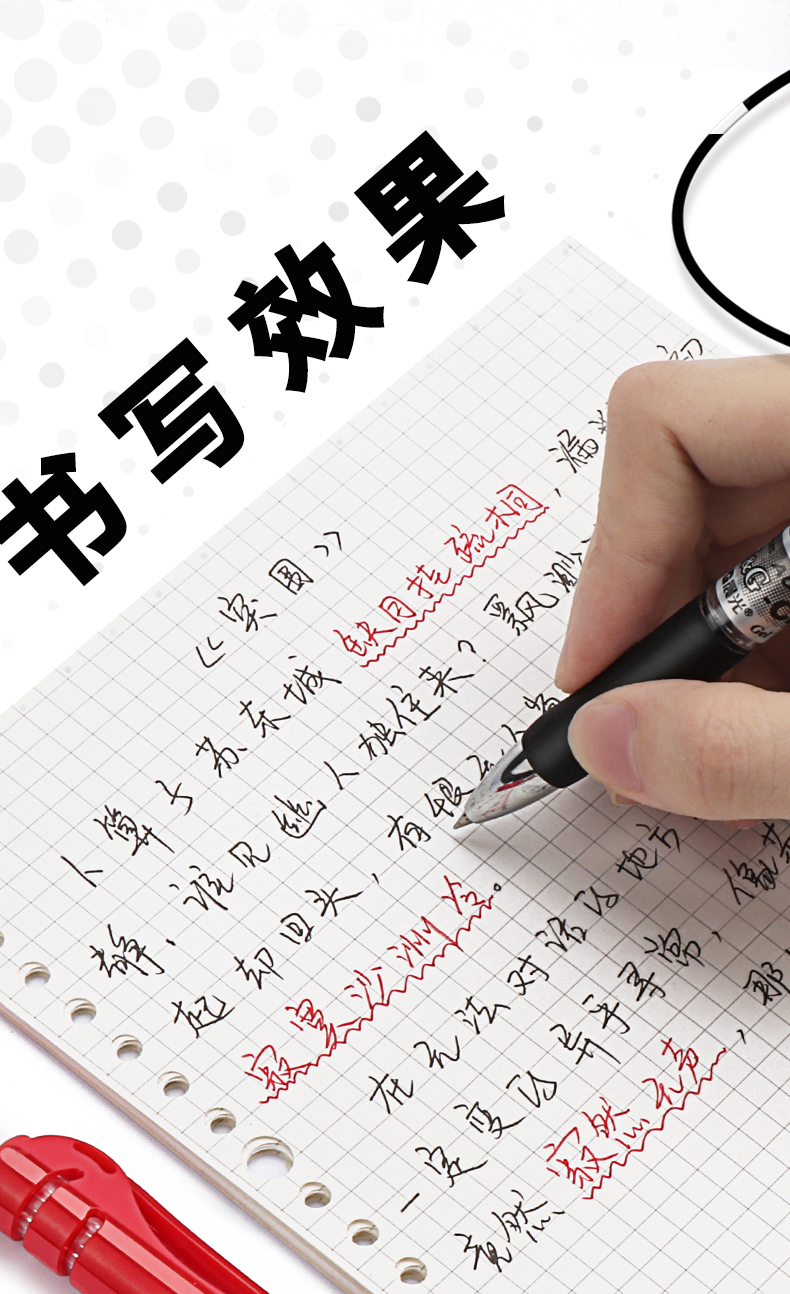 书写效果
卜算子 苏东 缺月挂疏桐，漏 初
静，谁见幽人独往来？飘渺
起却回头，有恨无人省
寂寞沙洲冷。
在无法对话的地方
一定变的异乎寻常，像
竟然寂然无声，那
&G
光®